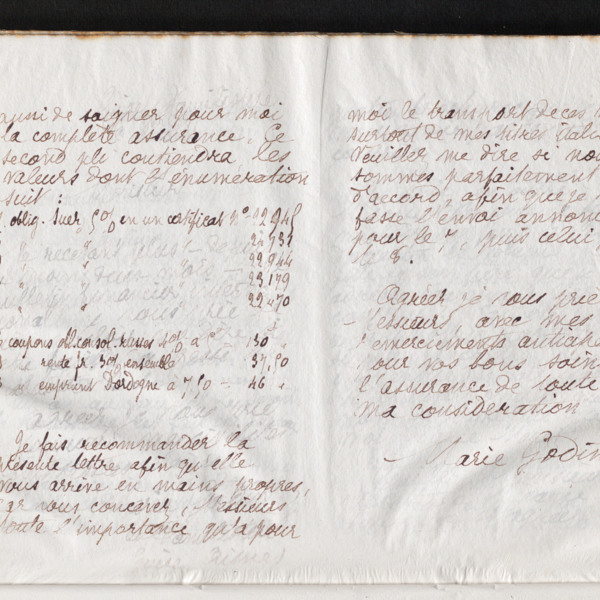 de soigner pour moi
la complète assurance. Ce
second pli contiendra les
valeurs dont l'énumération
suit :
oblig. Suez 5% en un certificat n° 12945
24734
22944
23179
22470
coupons obl. consol. russes 40% à 150
rente fr. 3% ensemble 37,50
emprunt Dordogne à 7,50 46
Je fais recommander la
présente lettre afin qu'elle
vous arrive en mains propres,
car vous concevez, Messieurs
toute l'importance qu'a pour
moi le transport de ces
surtout de mes titres
Veuillez me dire si
sommes parfaitement
d'accord, afin que je
fasse l'envoi
pour le 7, puis celui
le 8.
Agréer je vous prie
Messieurs, avec mes
remerciements
pour vos bons soins
l'assurance de toute
ma considération
Marie Godin